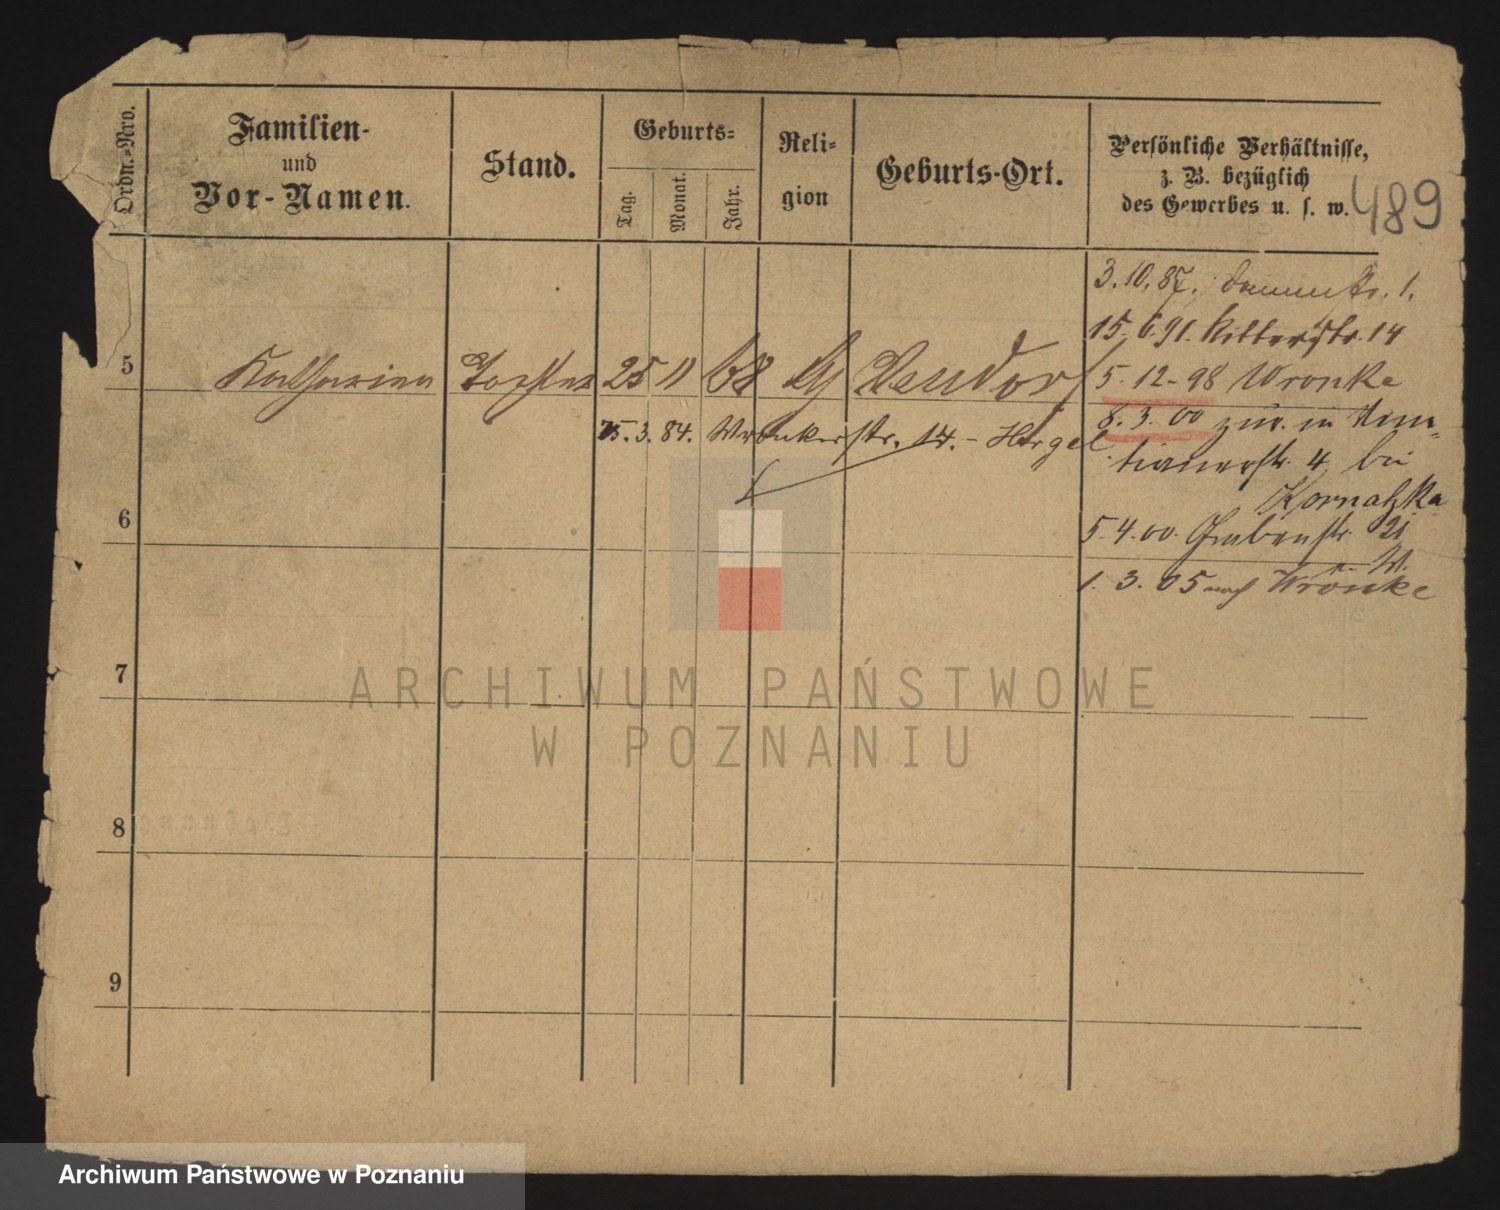 Ordn.-Nro.
Familien-
und
Vor-Namen.
Stand.
Geburts-
Tag.
Monat.
Jahr.
Reli-
gion
Geburts-Ort.
Persönliche Verhältnisse,
z. B. bezüglich
des Gewerbes u. s. w.
489
3.10.87. str. 1.
15.6.91. Ritterstr. 14
5 Katharina Tochter 25 11 68 Neudorf
5.-12-98 Wronke
15.3.84. Wronkerstr. 14.
8.3.00 zur. in
str. 4 bei
6
5.4.00. Grabenstr. 21
1.3.05 nach Wronke
7
8
9
ARCHIWUM PAŃSTWOWE
W POZNANIU
Archiwum Państwowe w Poznaniu